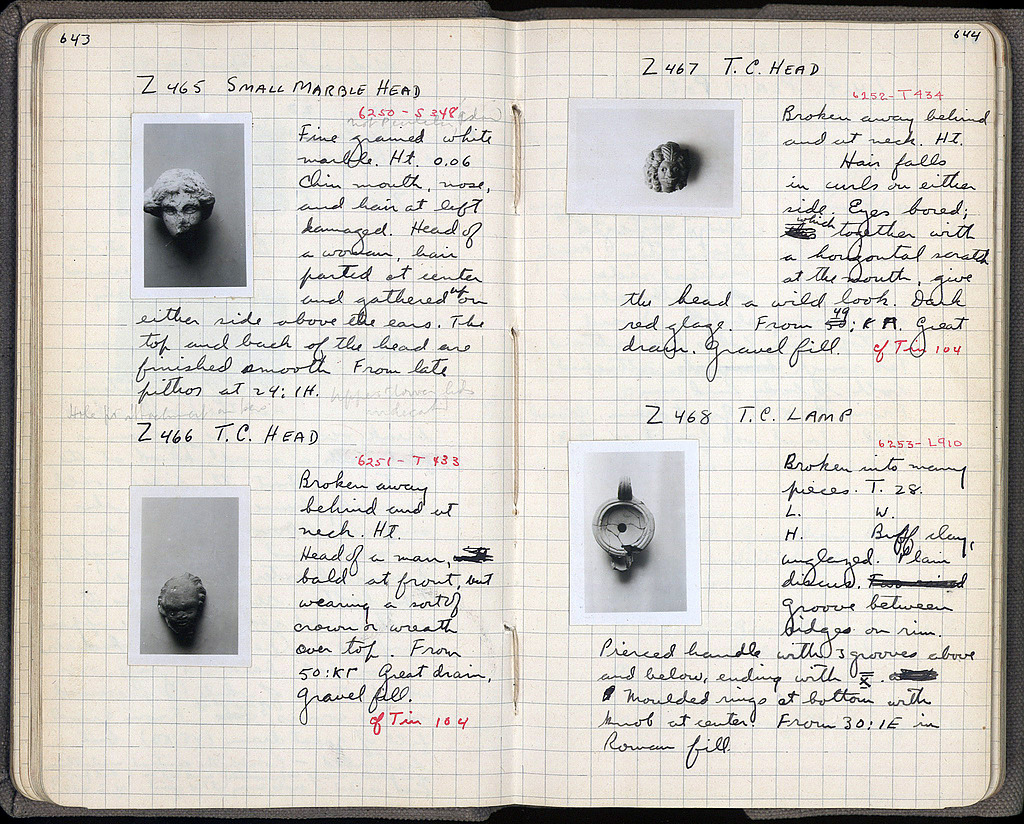 643
Z 465 SMALL MARBLE HEAD
6250 - S 348
Fine grained white
marble. Ht. 0.06
Chin mouth, nose,
and hair at left
damaged. Head of
a woman, hair
parted at center
and gathered up on
either side above the ears. The
top and back of the head are
finished smooth From late
pithos at 24:1H.
Upper + lower lids
indicated
Z 466 T.C. HEAD
6251 - T 433
Broken away
behind and at
neck. Ht.
Head of a man,
bald at front, but
wearing a sort of
crown or wreath
over top. From
50:KΓ Great drain,
Gravel fill.
cf Tin 104
644
Z 467 T.C. HEAD
6252 - T 434
Broken away behind
and at neck. Ht.
Hair falls
in curls on either
side. Eyes bored;
which together with
a horizontal scratch
at the mouth, give
the head a wild look. Dark
red glaze. From 49
50; K Great
drain. Gravel fill. cf Tin 104
Z 468 T.C. LAMP
6253 - L910
Broken into many
pieces. T. 28.
L. W.
H. Buff clay,
unglazed. Plain
discus.
Groove between
ridges on rim.
Pierced handle with 3 grooves above
and below, ending with X.
Moulded rings at bottom with
knob at center. From 30:1E in
Roman fill.